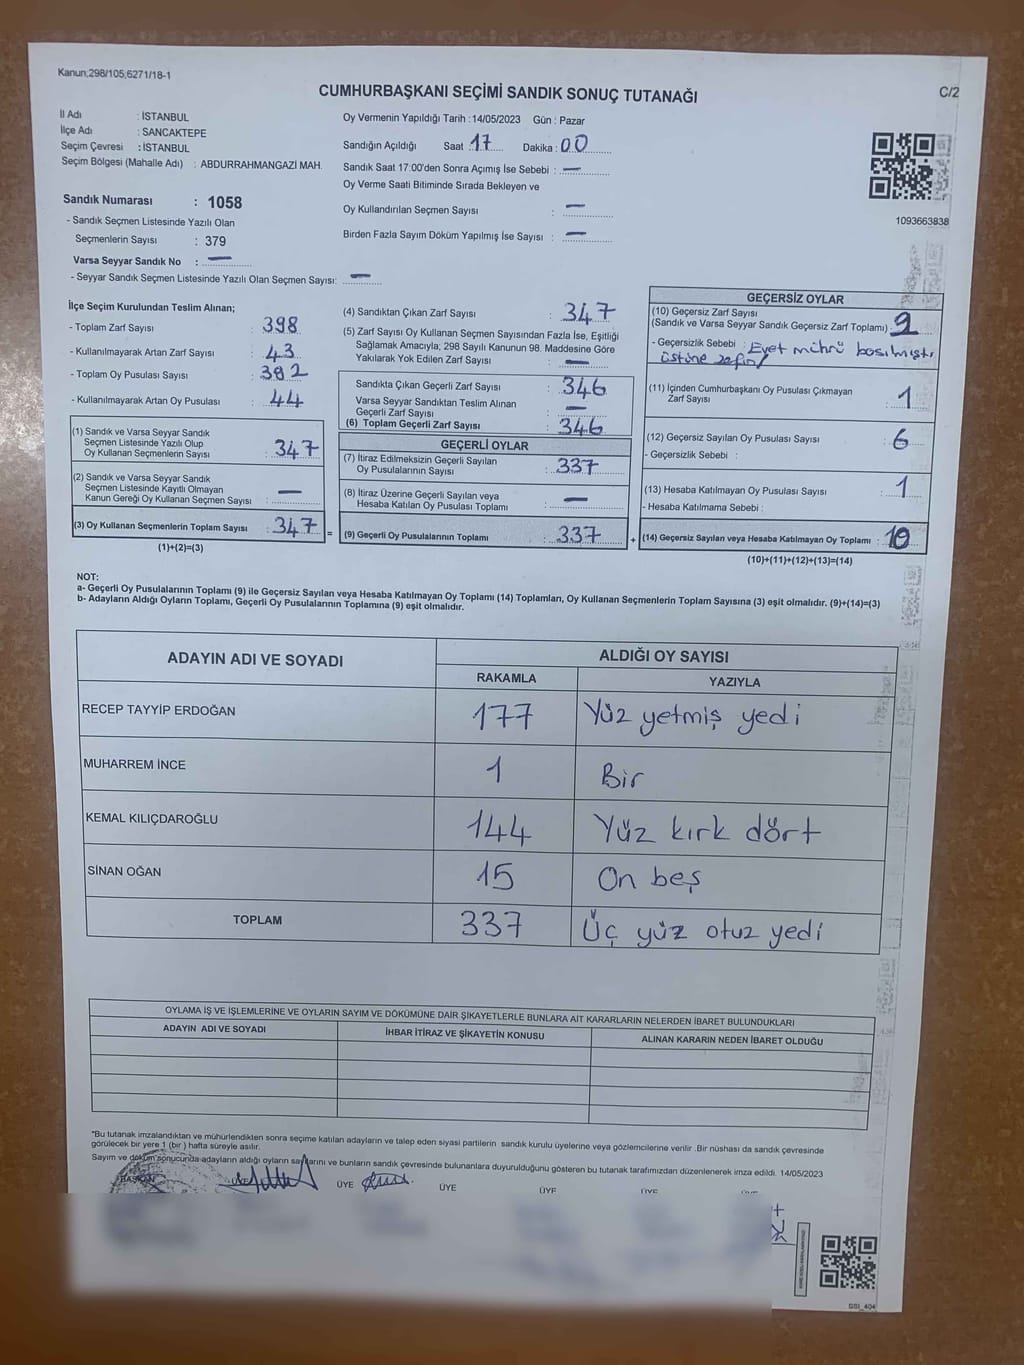 Kanun;298/105;6271/18-1
C/2
CUMHURBAŞKANI SEÇİMİ SANDIK SONUÇ TUTANAĞI
İl Adı : İSTANBUL
İlçe Adı : SANCAKTEPE
Seçim Çevresi : İSTANBUL
Seçim Bölgesi (Mahalle Adı) : ABDURRAHMANGAZİ MAH.
Sandık Numarası : 1058
- Sandık Seçmen Listesinde Yazılı Olan
Seçmenlerin Sayısı : 379
Varsa Seyyar Sandık No : —
- Seyyar Sandık Seçmen Listesinde Yazılı Olan Seçmen Sayısı: —
Oy Vermenin Yapıldığı Tarih :14/05/2023 Gün : Pazar
Sandığın Açıldığı Saat 17 Dakika : 00
Sandık Saat 17:00'den Sonra Açımış İse Sebebi : —
Oy Verme Saati Bitiminde Sırada Bekleyen ve
Oy Kullandırılan Seçmen Sayısı : —
Birden Fazla Sayım Döküm Yapılmış İse Sayısı : —
1093663838
İlçe Seçim Kurulundan Teslim Alınan;
- Toplam Zarf Sayısı : 398
- Kullanılmayarak Artan Zarf Sayısı : 43
- Toplam Oy Pusulası Sayısı : 392
- Kullanılmayarak Artan Oy Pusulası : 44
(1) Sandık ve Varsa Seyyar Sandık
Seçmen Listesinde Yazılı Olup
Oy Kullanan Seçmenlerin Sayısı : 347
(2) Sandık ve Varsa Seyyar Sandık
Seçmen Listesinde Kayıtlı Olmayan
Kanun Gereği Oy Kullanan Seçmen Sayısı : —
(3) Oy Kullanan Seçmenlerin Toplam Sayısı : 347 =
(1)+(2)=(3)
(4) Sandıktan Çıkan Zarf Sayısı : 347
(5) Zarf Sayısı Oy Kullanan Seçmen Sayısından Fazla İse, Eşitliği
Sağlamak Amacıyla; 298 Sayılı Kanunun 98. Maddesine Göre
Yakılarak Yok Edilen Zarf Sayısı : —
Sandıkta Çıkan Geçerli Zarf Sayısı : 346
Varsa Seyyar Sandıktan Teslim Alınan
Geçerli Zarf Sayısı : —
(6) Toplam Geçerli Zarf Sayısı : 346
GEÇERLİ OYLAR
(7) İtiraz Edilmeksizin Geçerli Sayılan
Oy Pusulalarının Sayısı : 337
(8) İtiraz Üzerine Geçerli Sayılan veya
Hesaba Katılan Oy Pusulası Toplamı : —
(9) Geçerli Oy Pusulalarının Toplamı : 337 +
GEÇERSİZ OYLAR
(10) Geçersiz Zarf Sayısı
(Sandık ve Varsa Seyyar Sandık Geçersiz Zarf Toplamı) : 2
- Geçersizlik Sebebi : Evet mührü basılmıştı
üstüne
(11) İçinden Cumhurbaşkanı Oy Pusulası Çıkmayan
Zarf Sayısı : 1
(12) Geçersiz Sayılan Oy Pusulası Sayısı : 6
- Geçersizlik Sebebi :
(13) Hesaba Katılmayan Oy Pusulası Sayısı : 1
- Hesaba Katılmama Sebebi :
(14) Geçersiz Sayılan veya Hesaba Katılmayan Oy Toplamı : 10
(10)+(11)+(12)+(13)=(14)
NOT:
a- Geçerli Oy Pusulalarının Toplamı (9) ile Geçersiz Sayılan veya Hesaba Katılmayan Oy Toplamı (14) Toplamları, Oy Kullanan Seçmenlerin Toplam Sayısına (3) eşit olmalıdır. (9)+(14)=(3)
b- Adayların Aldığı Oyların Toplamı, Geçerli Oy Pusulalarının Toplamına (9) eşit olmalıdır.
ADAYIN ADI VE SOYADI ALDIĞI OY SAYISI
RAKAMLA YAZIYLA
RECEP TAYYİP ERDOĞAN 177 Yüz yetmiş yedi
MUHARREM İNCE 1 Bir
KEMAL KILIÇDAROĞLU 144 Yüz kırk dört
SİNAN OĞAN 15 On beş
TOPLAM 337 Üç yüz otuz yedi
OYLAMA İŞ VE İŞLEMLERİNE VE OYLARIN SAYIM VE DÖKÜMÜNE DAİR ŞİKAYETLERLE BUNLARA AİT KARARLARIN NELERDEN İBARET BULUNDUKLARI
ADAYIN ADI VE SOYADI İHBAR İTİRAZ VE ŞİKAYETİN KONUSU ALINAN KARARIN NEDEN İBARET OLDUĞU
*Bu tutanak imzalandıktan ve mühürlendikten sonra seçime katılan adayların ve talep eden siyasi partilerin sandık kurulu üyelerine veya gözlemcilerine verilir .Bir nüshası da sandık çevresinde
görülecek bir yere 1 (bir ) hafta süreyle asılır.
Sayım ve döküm sonucunda adayların aldığı oyların sayılarını ve bunların sandık çevresinde bulunanlara duyurulduğunu gösteren bu tutanak tarafımızdan düzenlenerek imza edildi. 14/05/2023
BAŞKAN ÜYE ÜYE ÜYE ÜYE ÜYE
GSI_404